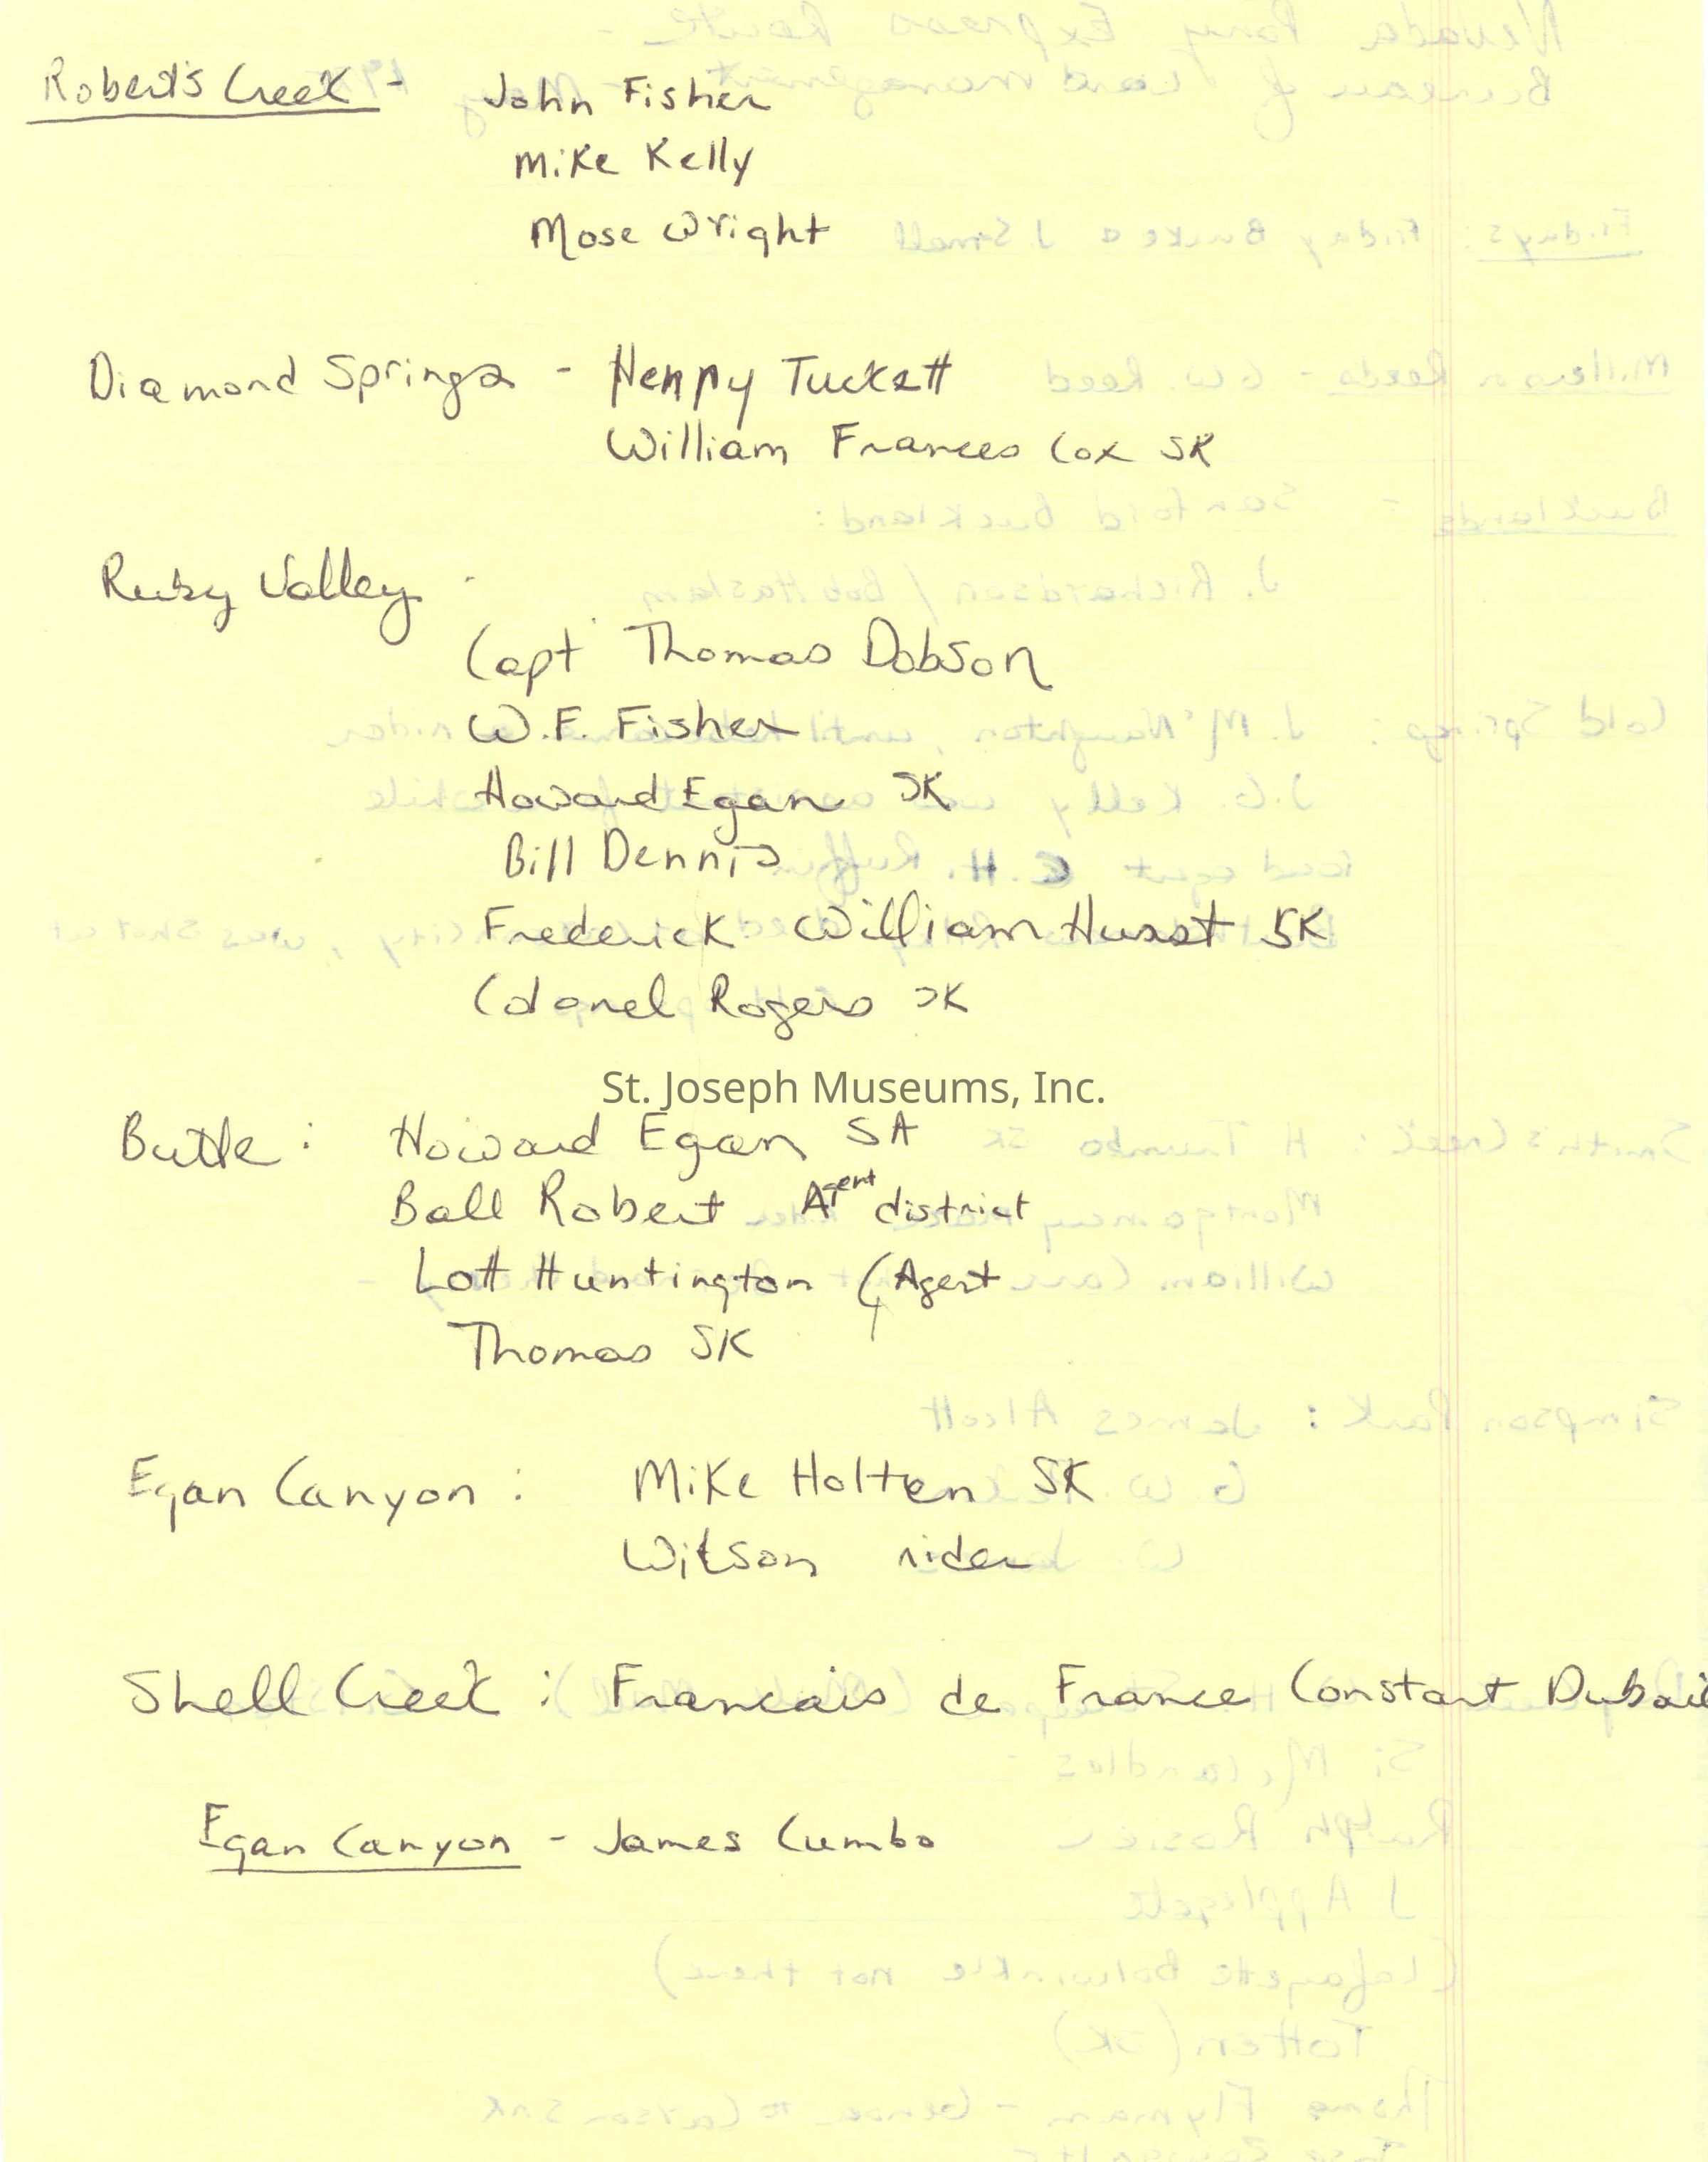 Robert's Creek - John Fisher
Mike Kelly
Mose Wright
Diamond Springs - Henry Tuckett
William Frances Cox SK
Ruby Valley -
Capt Thomas Dobson
W.F. Fisher
Howard Egan SK
Bill Dennis
Frederick William Hurst SK
Colonel Rogers SK
St. Joseph Museums, Inc.
Butte : Howard Egan SA
Ball Robert Agent district
Lott Huntington (Agent
Thomas SK
Egan Canyon : Mike Holten SK
Wilson rider
Shell Creek : Francais de France Constant Dubail
Egan Canyon - James Cumbo